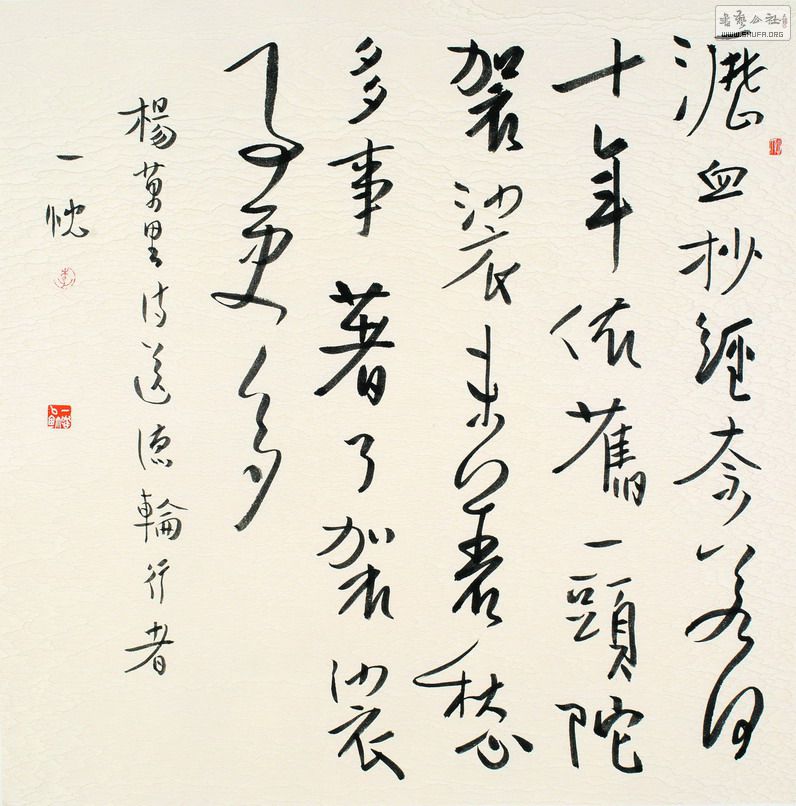 瀝血抄經奈若何
十年依舊一頭陀
袈裟未著愁
多事著了袈裟
事更多
楊萬里詩送德輪行者
一忱
書藝公社
WWW.SHUFA.ORG